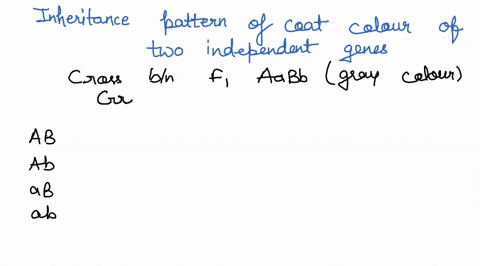 Inheritance pattern of coat colour of
two independent genes
Cross b/n F₁ AaBb (gray colour)
Gr
AB
Ab
aB
ab